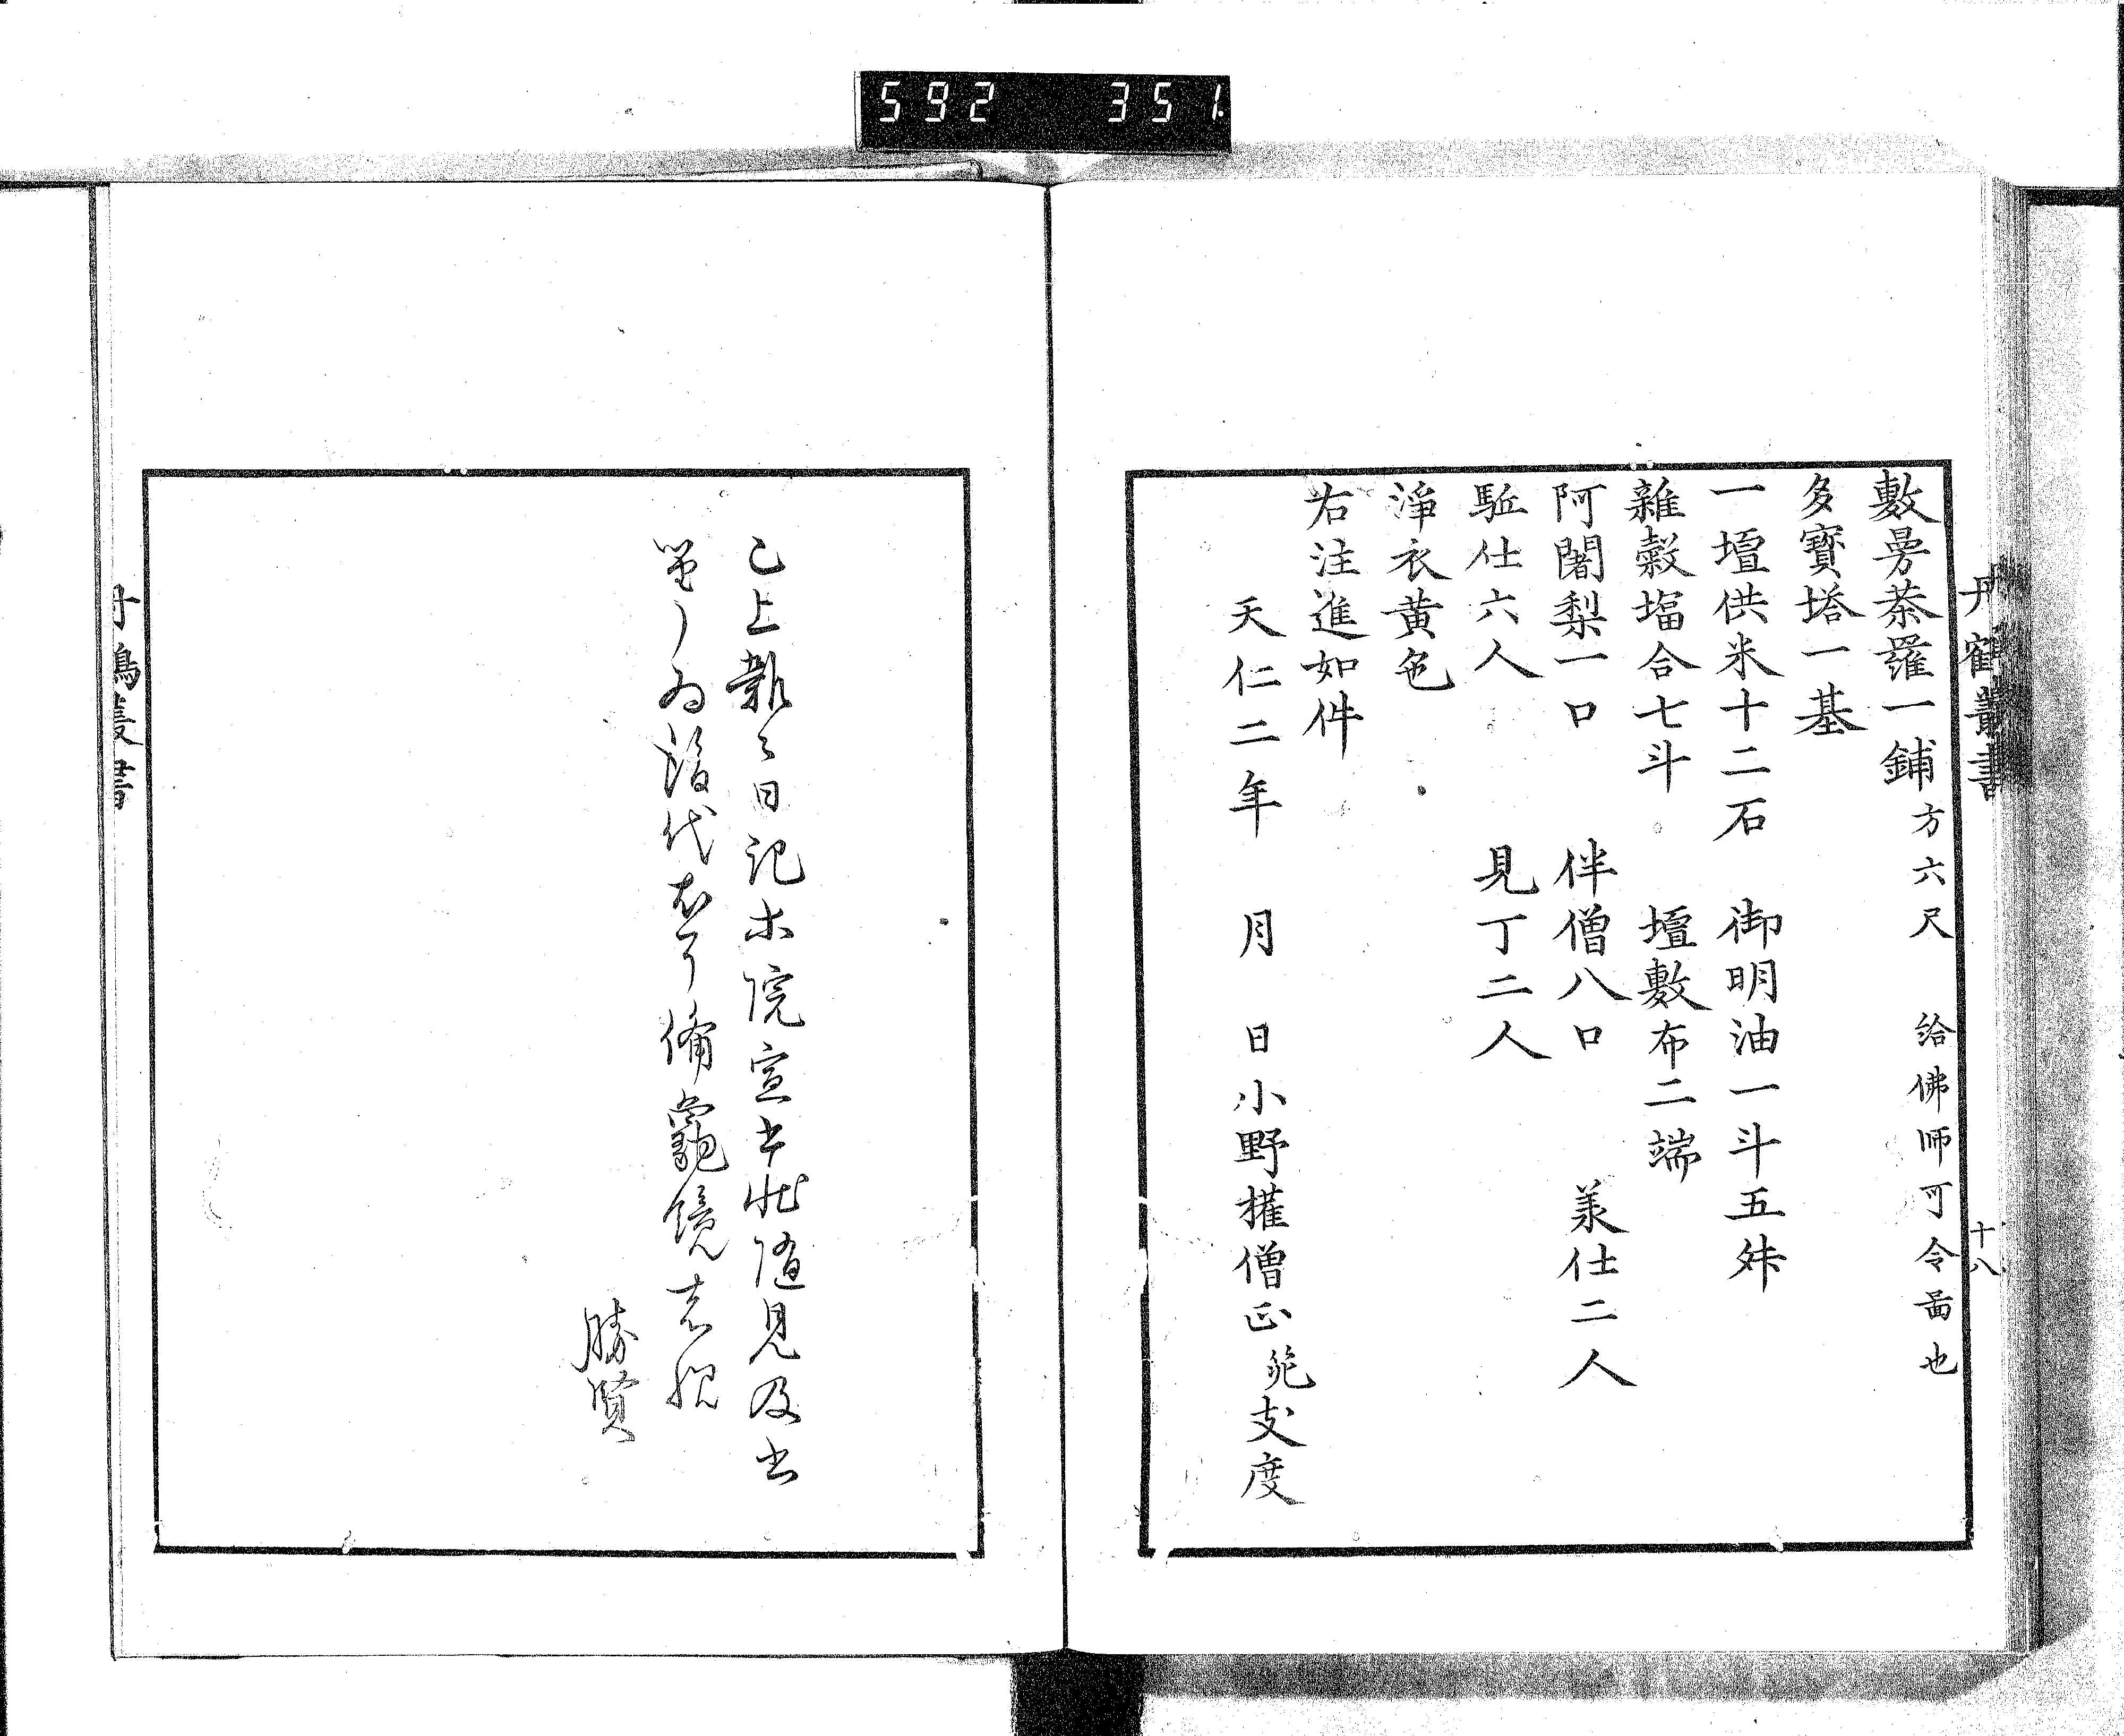 592 351
丹鶴叢書
十八
敷曼荼羅一鋪 方六尺 給佛師可令啚也
多寳塔一基
一壇供米十二石 御明油一斗五舛
雜穀塩合七斗 壇敷布二端
阿闍梨一口 伴僧八口 羕仕二人
駈仕六人 見丁二人
淨衣黄色
右注進如件
天仁二年 月 日小野權僧正範支度
已上新之日記木院宣書状隨見及書
爲後代 可備龜鏡
勝賢
丹鶴叢書